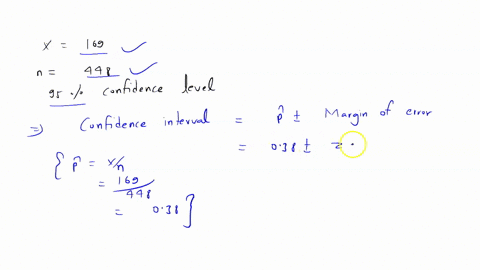 x = 169 ✓
n = 448 ✓
95 % confidence level
⇒ Confidence interval = p̂ ± Margin of error
= 0.38 ±
{ p̂ = x/n
= 169/448
= 0.38 }